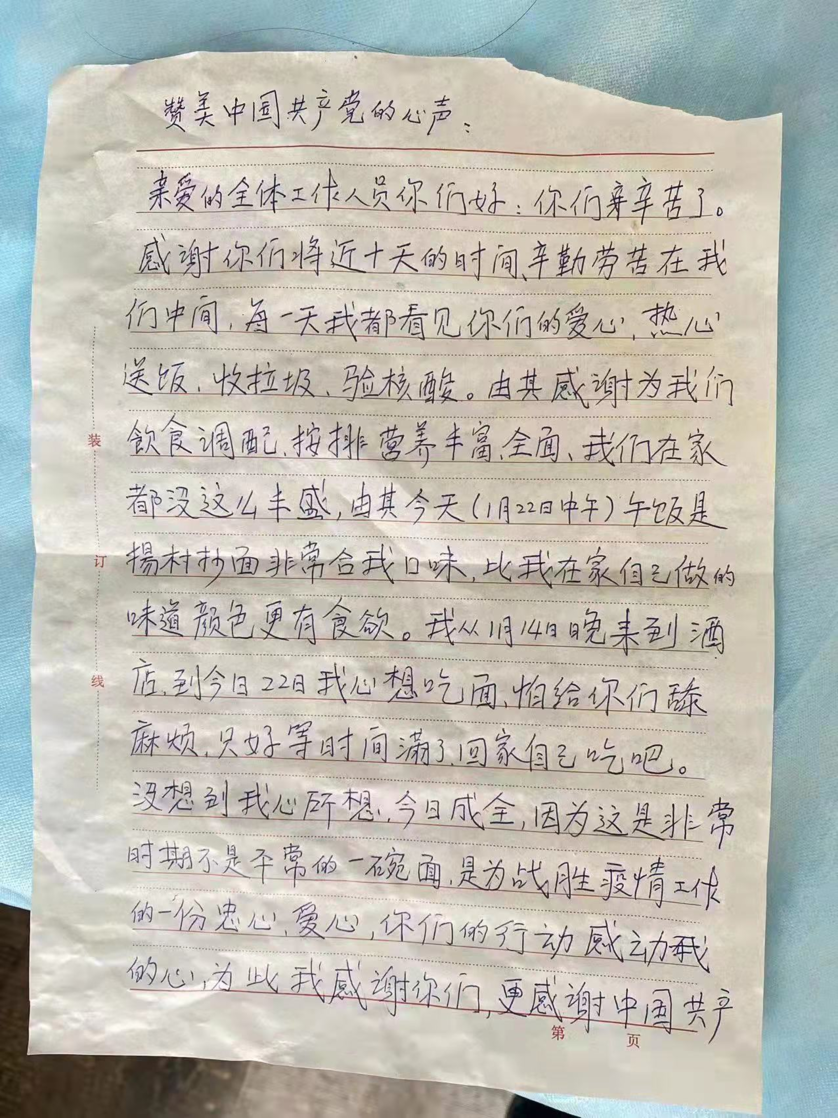 赞美中国共产党的心声：
亲爱的全体工作人员你们好：你们辛苦了。
感谢你们将近十天的时间、辛勤劳苦在我
们中间，每一天我都看见你们的爱心、热心
送饭、收拉圾、验核酸。由其感谢为我们
飲食调配、按排营养丰富、全面、我们在家
都没这么丰盛，由其今天（1月22日中午）午饭是
揚村抄面非常合我口味，比我在家自己做的
味道颜色更有食欲。我从1月14日晚来到酒
店、到今日22日我心想吃面、怕给你们
麻烦，只好等时间满了回家自己吃吧。
没想到我心所想，今日成全，因为这是非常
时期不是平常的一碗面，是为战胜疫情工作
的一份忠心、爱心，你们的行动感动我
的心，为此我感谢你们，更感谢中国共产
装
订
线
第 页